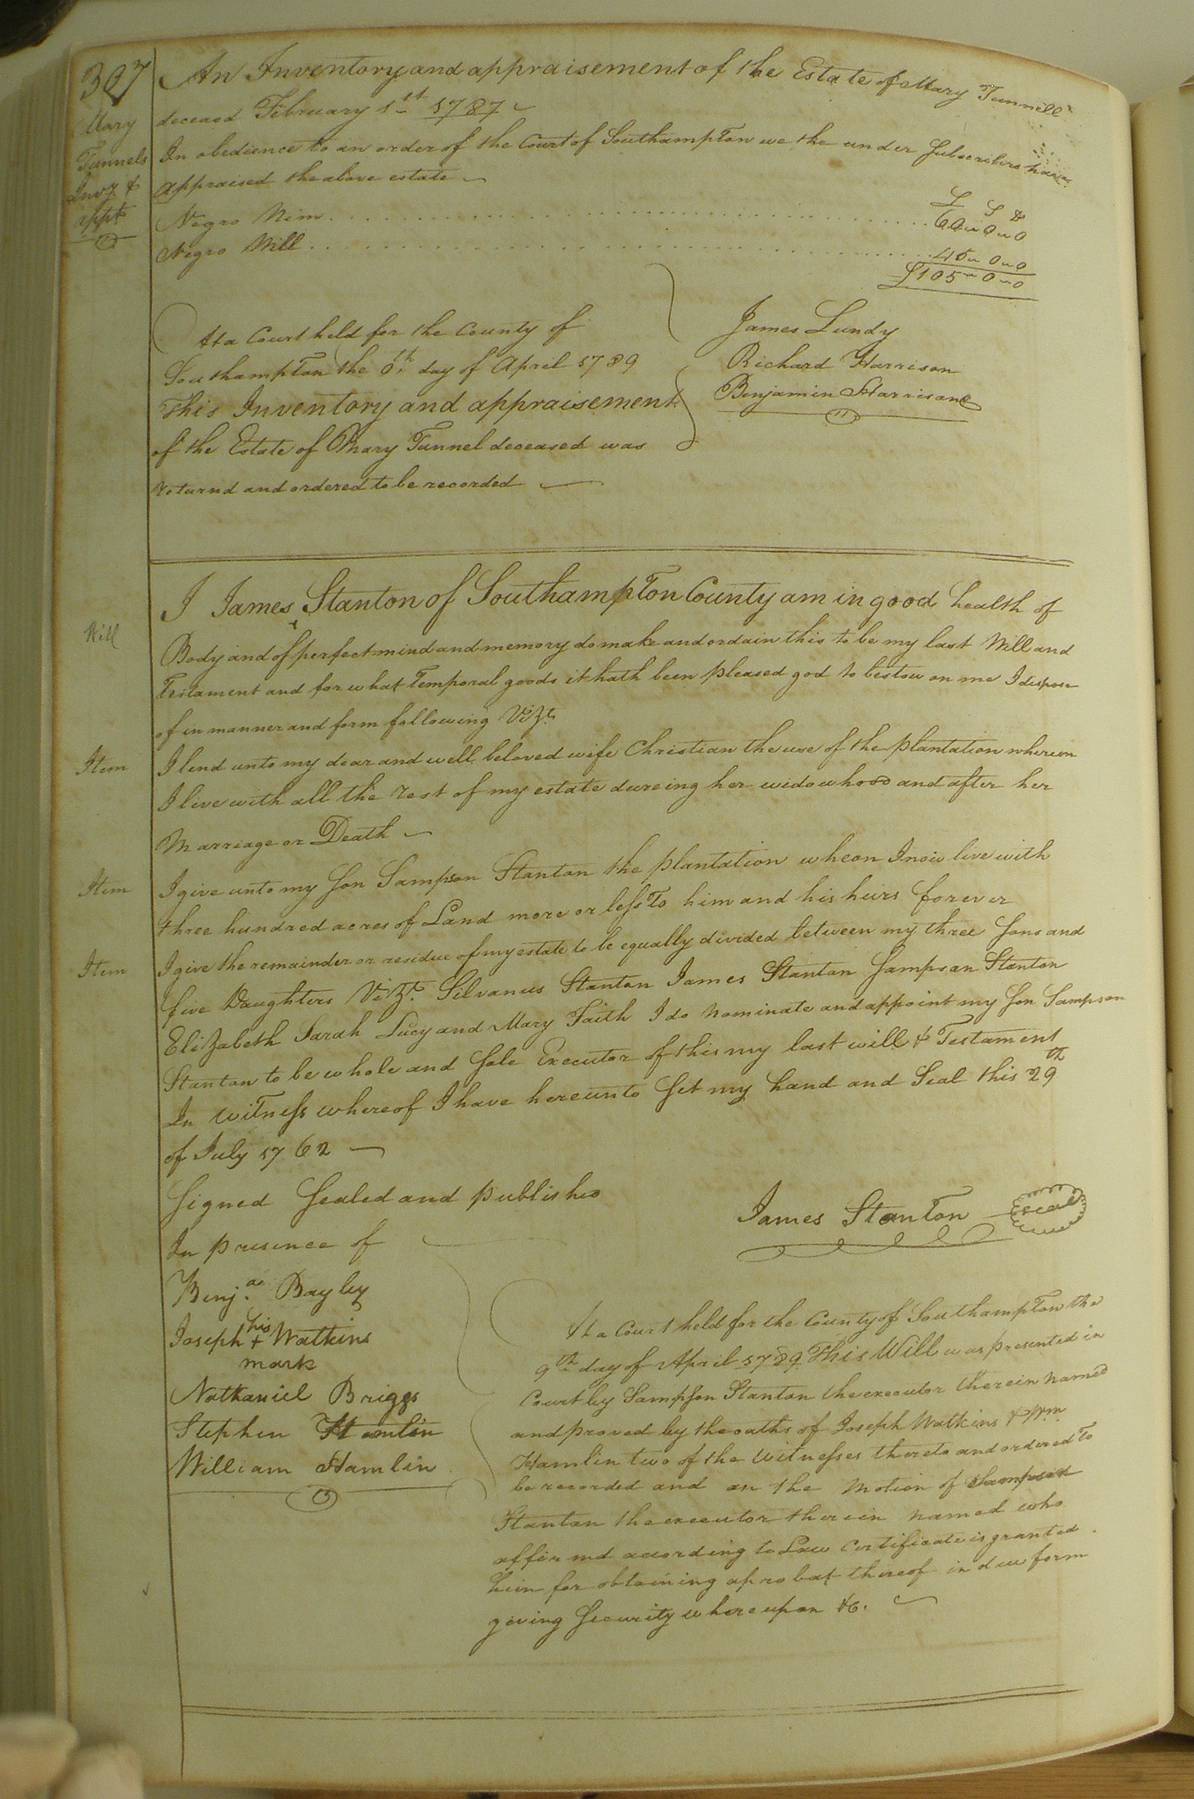 307
Mary
Tunnels
Invy &
appt
An Inventory and appraisement of the Estate of Mary Tunnell
deceasd February 1st 1787
In obedience to an order of the Court of Southampton we the under Subscribers have
Appraised the above estate
£ S D
Negro Nim 60 0 0
Negro Will 45 0 0
£105 0 0
At a Court held for the County of
Southampton the day of April 1789
This Inventory and appraisement
of the Estate of Mary Tunnel deceased was
returnd and ordered to be recorded
James Lundy
Richard Harrison
Benjamin Harrison
Will
I James Stanton of Southampton County am in good health of
Body and of perfect mind and memory do make and ordain this to be my last Will and
Testament and for what Temporal goods it hath been pleased god to bestow on me I dispose
of in manner and form following Vizt
Item
I lend unto my dear and well beloved wife Christian the use of the plantation wherein
I live with all the rest of my estate dureing her widowhood and after her
Marriage or Death
Item
I give unto my Son Sampson Stanton the plantation wheon I now live with
three hundred acres of Land more or less To him and his heirs forever
Item
I give the remainder or residue of my estate to be equally divided between my three Sons and
five Daughters Vizt. Silvanus Stanton James Stanton Sampson Stanton
Elizabeth Sarah Lucy and Mary Faith I do nominate and appoint my Son Sampson
Stanton to be whole and Sole Executor of this my last will & Testament
In Witness whereof I have hereunto Set my hand and Seal this 29th
of July 1762
Signed Sealed and publishd
In presence of
James Stanton seal
Benja. Bayley
Joseph his + Watkins
mark
Nathaniel Briggs
Stephen Hamlin
William Hamlin
At a Court held for the County of Southampton the
9th day of April 1789 This Will was presented in
Court by Sampson Stanton the executor therein named
and proved by the oaths of Joseph Watkins & Wm
Hamlin two of the Witnesses thereto and ordered to
be recorded and on the Motion of Sampson
Stanton the executor therein named who
affirmd according to Law Certificate is granted
him for obtaining a probat thereof in due form
giving Security whereupon &c.